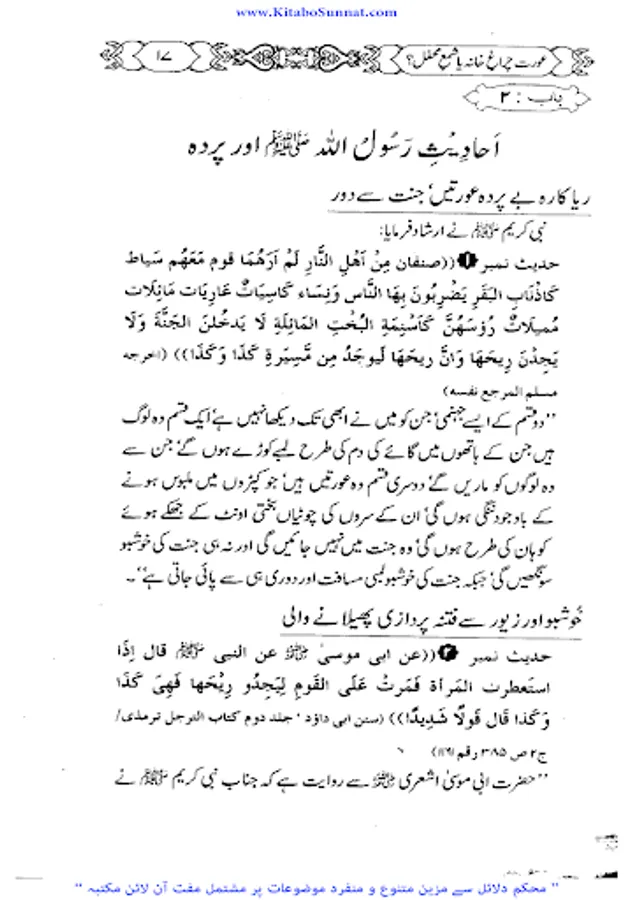 www.KitaboSunnat.com
عورت چراغ خانہ یا شمع محفل؟
۱۷
باب : ۲
اَحادِیْثِ رَسُوْلُ اللہ ﷺ اور پردہ
ریاکارہ بے پردہ عورتیں‘ جنت سے دور
نبی کریم ﷺ نے ارشاد فرمایا:
حدیث نمبر ❶ ((صنفان مِنْ اَهْلِ النَّارِ لَمْ اَرَهُمَا قوم مَعَهُم سَياط
كَاذْنَابِ البَقَرِ يَضْرِبُونَ بِهَا النَّاس وَنِسَاء كَاسِيَاتٌ عَارِيَات مَائِلَات
مُمِيلَاتٌ رُؤسُهُنَّ كَاَسْنِمَةِ الْبُخْتِ المَائِلَةِ لَا يَدخُلنَ الجَنَّةَ وَلَا
يَجِدْنَ رِيحَهَا وَاِنَّ رِيحَهَا لَيوجَدُ مِن مَّسِيرَةِ كَذَا وَكَذَا)) (اخرجه
مسلم المرجع نفسه)
’’دو قسم کے ایسے جہنمی‘ جن کو میں نے ابھی تک دیکھا نہیں ہے‘ ایک قسم وہ لوگ
ہیں جن کے ہاتھوں میں گائے کی دم کی طرح لمبے کوڑے ہوں گے‘ جن سے
وہ لوگوں کو ماریں گے‘ دوسری قسم وہ عورتیں ہیں‘ جو کپڑوں میں ملبوس ہونے
کے باوجود ننگی ہوں گی‘ ان کے سروں کی چوٹیاں بختی اونٹ کے جھکے ہوئے
کوہان کی طرح ہوں گی‘ وہ جنت میں نہیں جائیں گی اور نہ ہی جنت کی خوشبو
سونگھیں گی‘ جبکہ جنت کی خوشبو لمبی مسافت اور دوری ہی سے پائی جاتی ہے‘‘۔
خُوشبو اور زیور سے فتنہ پردازی پھیلانے والی
حدیث نمبر ❷ ((عن ابی موسیٰ ؓ عن النبی ﷺ قال اِذَا
استَعطرت المَرأة فَمَرتْ عَلَى القَومِ لِيَجِدُو رِيْحَهَا فَهِيَ كَذَا
وَكَذَا قَالَ قَولًا شَدِيدًا)) (سنن ابی داؤد‘ جلد دوم کتاب الترجل ترمذی/
ج۲ ص ۳۸۵ رقم )
’’حضرت ابی موسیٰ اشعری ؓ سے روایت ہے کہ جناب نبی کریم ﷺ نے
" محکم دلائل سے مزین متنوع و منفرد موضوعات پر مشتمل مفت آن لائن مکتبہ "